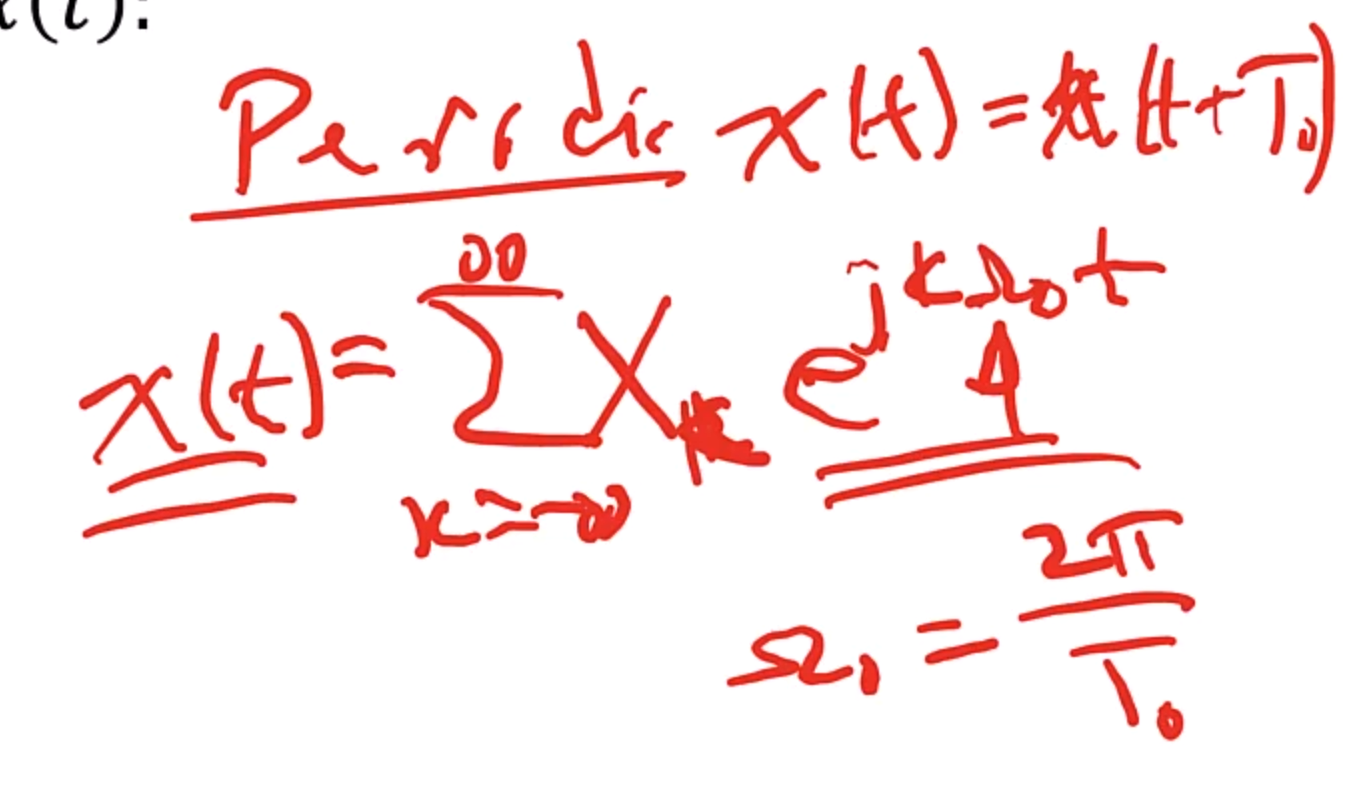 x(t):
Periodic x(t) = x(t+T₀)
x(t) = ∑_{k=-∞}^{∞} X_k e^{jkΩ₀t}
Ω₀ = 2π/T₀